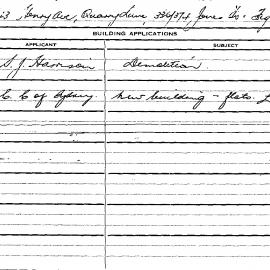 Henry Ave, Quarry Lane, 336/374 Jones St.
BUILDING APPLICATIONS
APPLICANT SUBJECT
S. J. Harrison Demolition.
C. C of Sydney new building - flats.